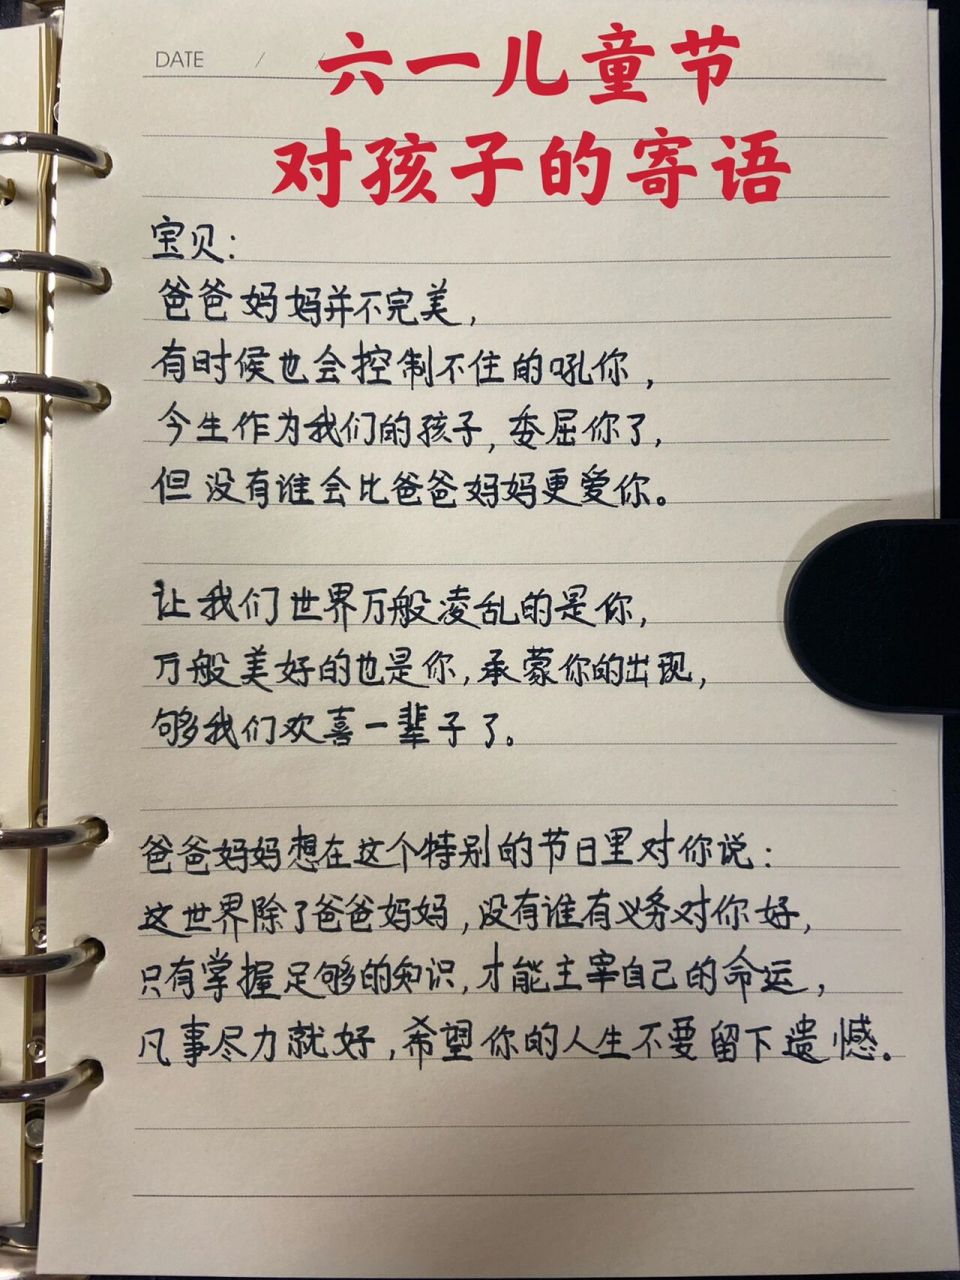 DATE / /
六一儿童节
对孩子的寄语
宝贝:
爸爸妈妈并不完美,
有时候也会控制不住的吼你,
今生作为我们的孩子,委屈你了,
但没有谁会比爸爸妈妈更爱你。
让我们世界万般凌乱的是你,
万般美好的也是你,承蒙你的出现,
够我们欢喜一辈子了。
爸爸妈妈想在这个特别的节日里对你说:
这世界除了爸爸妈妈,没有谁有义务对你好,
只有掌握足够的知识,才能主宰自己的命运,
凡事尽力就好,希望你的人生不要留下遗憾。